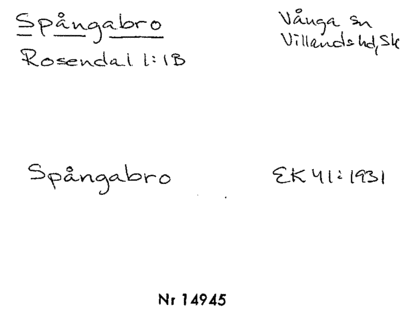 Spångabro
Vånga sn
Rosendal 1:1B
Villands hd, Sk
Spångabro
EK 41:1931
Nr 14945